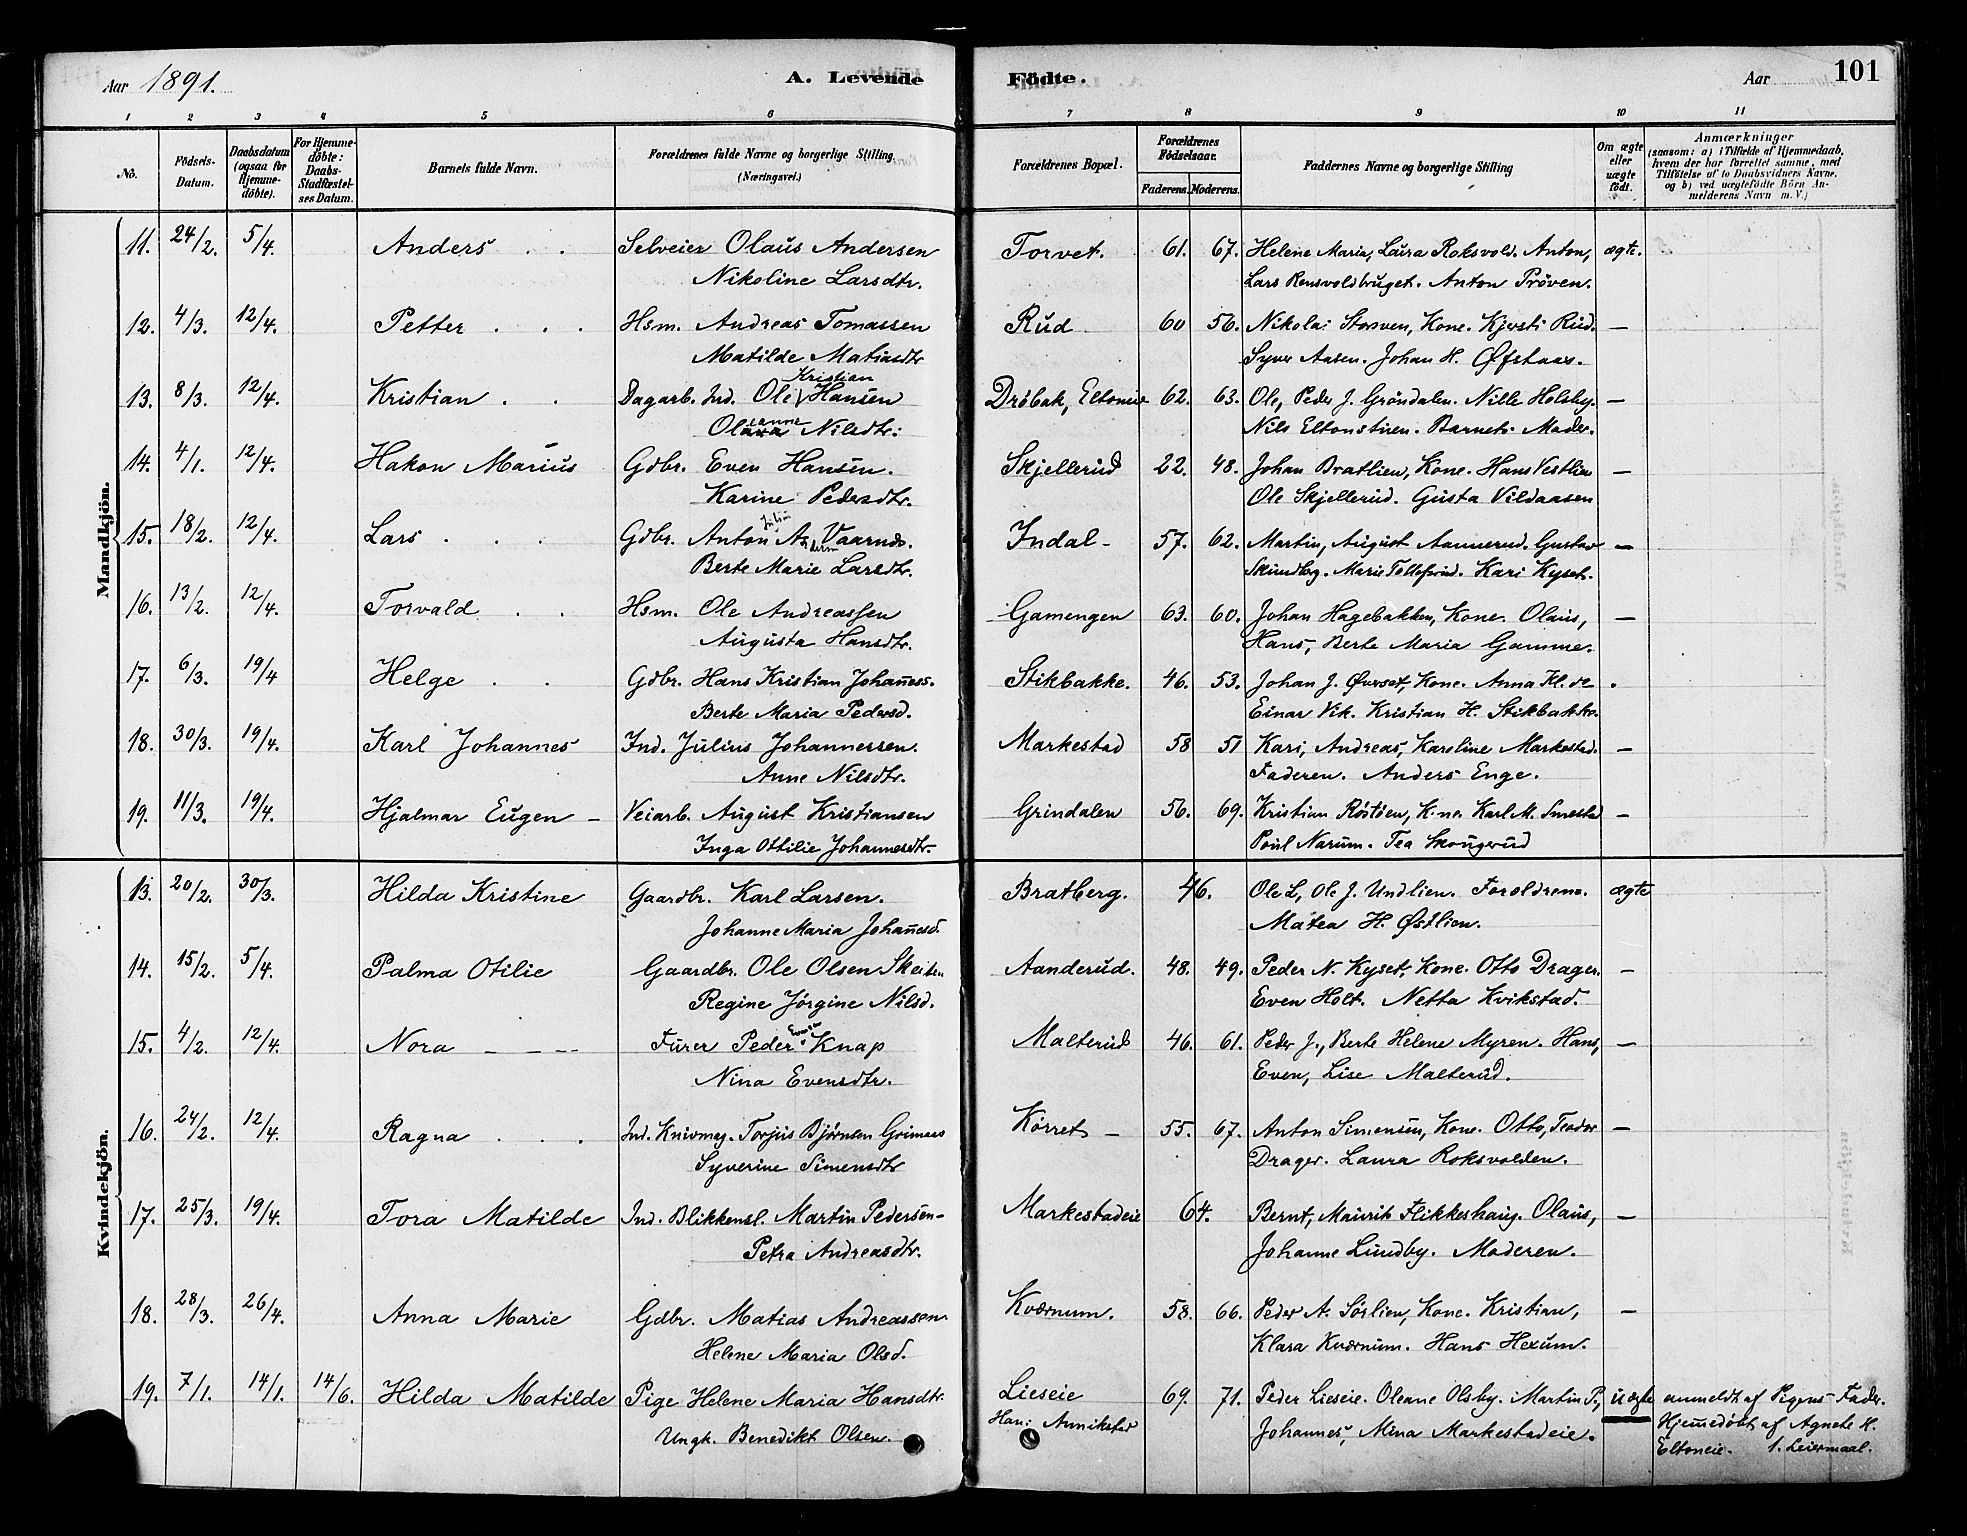 Aar 1891. A. Levende Fødte. Aar 101
1 2 3 4 5 6 7 8 9 10 11
No. Fødsels-Datum. Daabsdatum (ogsaa for Hjemmedøbte). For Hjemmedøbte: Daabs-Stadfæstelses Datum. Barnets fulde Navn. Forældrenes fulde Navne og borgerlige Stilling. (Næringsvei.) Forældrenes Bopæl. Forældrenes Fødselsaar. Faderens. Moderens. Faddernes Navne og borgerlige Stilling Om ægte eller uægte født. Anmærkninger (saasom: a) i Tilfælde af Hjemmedaab, hvem der har forrettet samme, med Tilføielse af to Daabsvidners Navne, og b) ved uægtefødte Börn Anmelderens Navn m. V.)
Mandkjön.
11. 24/2. 5/4. Anders . . Selveier Olaus Andersen Torvet. 61. 67. Helene Maria, Laura Roksvold. Anton, ægte.
Nikoline Larsdtr. Lars Rensvoldbruget. Anton Prøven.
12. 4/3. 12/4. Petter . . . Hsm. Andreas Tomassen Rud 60 56. Nikolai Storsven, Kone. Kjersti Rud. —
Matilde Matiasdtr Syver Aasen. Johan H. Øfstaas.
13. 8/3. 12/4. Kristian . . Dagarb. Ind. Ole Kristian Hansen Drøbak, Eltoneie 62. 63. Ole, Peder J. Grøndalen. Nille Holsby. —
Nilsdtr. Nils Eltonstuen. Barnets Moder.
14. 4/1. 12/4. Hakon Marius Gdbr. Even Hansen. Skjellerud 22. 48. Johan Bratlien, Kone. Hans Vestlien —
Karine Pedersdtr. Ole Skjellerud. Gusta Vildaasen
15. 18/2. 12/4. Lars . . . Gdbr. Anton Julius Vaarnes. Indal - 57. 62. Martin, August Aannerud. Gustav —
Berte Marie Larsdtr. Skundberg. Marie Tollefsrud. Kari Kyset.
16. 13/2. 12/4. Torvald . . Hsm. Ole Andreassen Gamengen 63. 60. Johan Hagebakken, Kone. Olaus, —
Augusta Hansdtr. Hans, Berte Maria Gamme.
17. 6/3. 19/4 Helge . . Gdbr. Hans Kristian Johaness. Stikbakke. 46. 53. Johan J. Øverset, Kone. Anna Kl. de .
Berte Maria Pedersd. Einar Vik. Kristian H. Stikbakke.
18. 30/3. 19/4. Karl Johannes Ind. Julius Johannessen. Markestad 58 51 Kari, Andreas, Karoline Markestad. —
Anne Nilsdtr. Faderen. Anders Enge.
19. 11/3. 19/4. Hjalmar Eugen — Veiarb. August Kristiansen Grindalen 56. 69. Kristian Røstøen, Kone. Karl M. Smestad —
Inga Ottilie Johannesdtr. Poul Narum. Tea Skougerud
Kvindekjön.
13. 20/2. 30/3. Hilda Kristine Gaardbr. Karl Larsen. Bratberg. 46. Ole L, Ole J. Undlien. Forældrene. ægte
Johanne Maria Johanesd. Matea H. Østlien.
14. 15/2. 5/4. Palma Otilie Gaardbr. Ole Olsen Aanderud. 48. 49. Peder N. Kyset, Kone. Otto Drager. —
Regine Jørgine Nilsd. Even Holt. Netta Kvikstad.
15. 4/2. 12/4. Nora — — — Furer Peder Evensen Knap Malterud 46. 61. Peder J., Berte Helene Myren. Hans, —
Nina Evensdtr. Even, Lise Malterud.
16. 24/2. 12/4. Ragna . . . Ind. Knivmag. Torjus Bjørnsen Grimaas Kørret — 55. 67. Anton Simensen, Kone. Otto, Teodor —
Syverine Simensdtr Drager. Laura Roksvolden.
17. 25/3. 19/4. Tora Matilde Ind. Blikkensl. Martin Pedersen- Markestadeie 64. Bernt, Maurits Flikkeshaug. Olaus, —
Petra Andreasdtr. Johanne Lundby. Moderen.
18. 28/3. 26/4. Anna Marie Gdbr. Matias Andreassen. Kværnum. 58. 66. Peder A. Sørlien, Kone. Kristian, —
Helene Maria Olsd. Klara Kværnum. Hans Hexum.
19. 7/1. 14/1. 14/6. Hilda Matilde Pige Helene Maria Hansdtr. Lieseie 69. 71. Peder Lieseie. Oleane Olsby. Martin P., uægte anmeldt af Pigens Fader.
Ungk. Benedikt Olsen. Han: Annikstad Johannes, Mina Markestadeie. Hjemmedøbt af Agnete H.
Eltoneie. 1. Leiermaal.